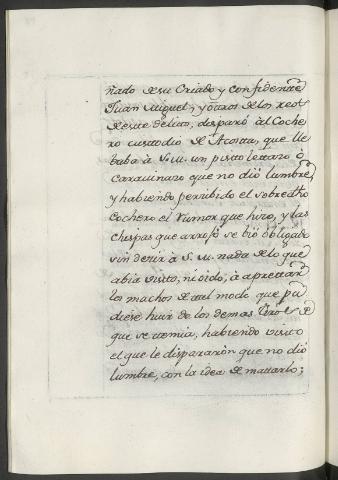 ñado de su Criado y confidente
Juan Miguel, y otros de los reos
de este delito, disparó al Coche
ro custodio de Acosta, que lle
baba à S. M. un pistoletazo ò
Caravinazo que no dió lumbre,
y habiendo percibido el sobredho
Cochero el rumor que hizo, y las
chispas que arrojó se bió obligado
sin decir à S. M. nada de lo que
abia visto, ni oido, à apretar
los machos de tal modo que pu
diese huir de los demas tiros
que se temia, habiendo visto
el que le dispararon que no dió
lumbre, con la idea de matarlo;